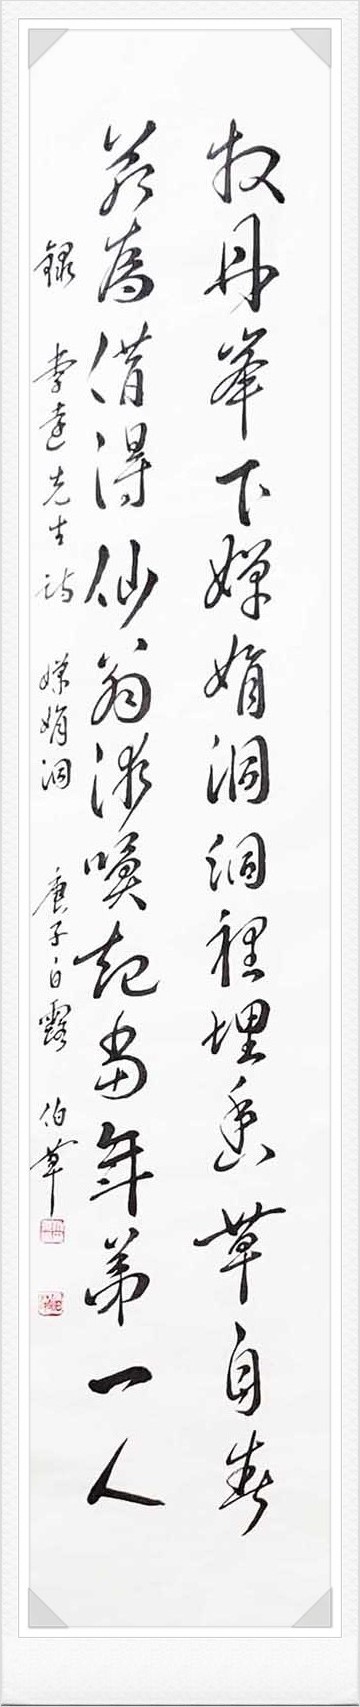 牧丹峯下嬋娟洞洞裡埋香草自春
若為借得仙翁術喚起當年第一人
錄 李達先生詩 嬋娟洞 庚子白露 伯華